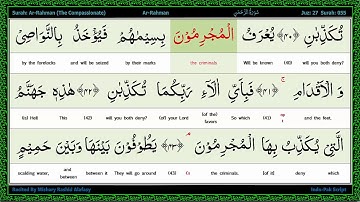 Surah: Ar-Rahman (The Compassionate) Ar-Rahman سُوْرَةُ الرَّحْمٰن Juz: 27 Surah: 055
تُكَذِّبٰنِ ﴿٤٠﴾ يُعْرَفُ الْمُجْرِمُوْنَ بِسِيْمٰهُمْ فَيُؤْخَذُ بِالنَّوَاصِيْ
by the forelocks and will be seized by their marks the criminals Will be known (40) will you both deny?
وَ الْاَقْدَامِ ﴿٤١﴾ فَبِاَيِّ اٰلَآءِ رَبِّكُمَا تُكَذِّبٰنِ ﴿٤٢﴾ هٰذِهٖ جَهَنَّمُ
(is) Hell This (42) will you both deny? (of) your Lord (of the) favors So which (41) and the feet.
الَّتِيْ يُكَذِّبُ بِهَا الْمُجْرِمُوْنَ ﴿٤٣﴾ يَطُوْفُوْنَ بَيْنَهَا وَبَيْنَ حَمِيْمٍ
scalding water, and between between it They will go around (43) the criminals. [of it] deny which
Recited by Mishary Rashid Alafasy Indo-Pak Script